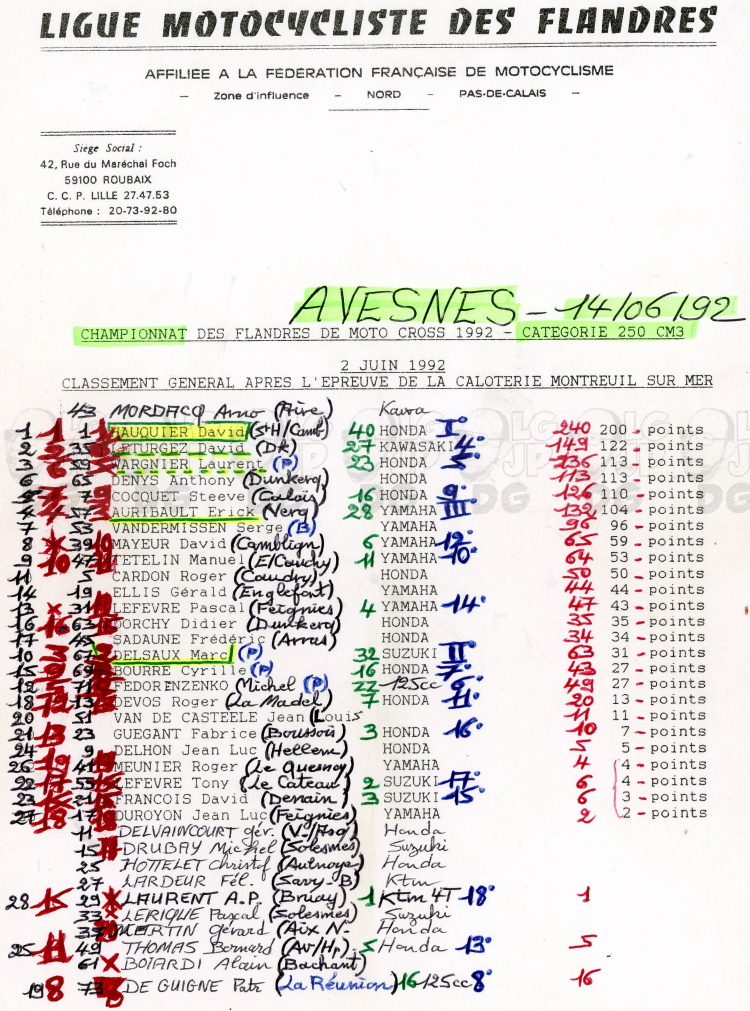 LIGUE MOTOCYCLISTE DES FLANDRES
AFFILIÉE A LA FÉDÉRATION FRANÇAISE DE MOTOCYCLISME
— Zone d'influence — NORD — PAS-DE-CALAIS —
Siege Social :
42, Rue du Maréchal Foch
59100 ROUBAIX
C. C. P. LILLE 27.47.53
Téléphone : 20-73-92-80
AVESNES - 14/06/92
CHAMPIONNAT DES FLANDRES DE MOTO CROSS 1992 - CATEGORIE 250 CM3
2 JUIN 1992
CLASSEMENT GENERAL APRES L'EPREUVE DE LA CALOTERIE MONTREUIL SUR MER
43 MORDACQ Arno (Aire) Kawa
1 1 1 HAUQUIER David (St H/Camb) 40 HONDA I° 240 200 - points
2 35 LETURGEZ David (Dk) 27 KAWASAKI 4° 149 122 - points
3 59 WARGNIER Laurent (P) 23 HONDA 5° 136 113 - points
65 DENYS Anthony (Dunkerq) HONDA 113 113 - points
79 COCQUET Steeve (Calais) 16 HONDA 9° 126 110 - points
57 AURIBAULT Erick (Nerg) 28 YAMAHA III° 132 104 - points
7 53 VANDERMISSEN Serge (B) YAMAHA 96 96 - points
8 39 MAYEUR David (Camblign) 6 YAMAHA 12° 65 59 - points
9 10 47 TETELIN Manuel (E/Caudry) 11 YAMAHA 10° 64 53 - points
11 5 CARDON Roger (Caudry) HONDA 50 50 - points
14 19 ELLIS Gérald (Englefont) YAMAHA 44 44 - points
13 31 LEFEVRE Pascal (Feignies) 4 YAMAHA 14° 47 43 - points
16 63 DORCHY Didier (Dunkerq) HONDA 35 35 - points
17 45 SADAUNE Frédéric (Arras) HONDA 34 34 - points
10 67 DELSAUX Marc (P) 32 SUZUKI II° 63 31 - points
15 69 BOURRE Cyrille (P) 16 HONDA 7° 43 27 - points
12 71 FEDORENZENKO Michel (P) 22 125cc 6° 49 27 - points
18 13 DEVOS Roger (La Madel) 7 HONDA 11° 20 13 - points
20 51 VAN DE CASTEELE Jean Louis 11 11 - points
21 13 23 GUEGANT Fabrice (Boussois) 3 HONDA 16° 10 7 - points
24 9 DELHON Jean Luc (Hellem) HONDA 5 5 - points
26 41 MEUNIER Roger (Le Quesnoy) YAMAHA 4 4 - points
22 55 LEFEVRE Tony (Le Cateau) 2 SUZUKI 17° 6 4 - points
23 21 FRANCOIS David (Denain) 3 SUZUKI 15° 6 3 - points
27 17 DUROYON Jean Luc (Feignies) YAMAHA 2 2 - points
11 DELVAINCOURT gér. (V./Asq) Honda
15 DRUBAY Michel (Solesmes) Suzuki
25 HOTTELET Christof (Aulnoye) Honda
27 LARDEUR Fél. (Savy-B) Ktm
28 15 29 LAURENT A.P. (Bruay) 1 Ktm 4T 18° 1
33 LERIQUE Pascal (Solesmes) Suzuki
MARTIN Gérard (Aix N. Honda
25 11 49 THOMAS Bernard (Av/Hp) 5 Honda 13° 5
61 BOTARDI Alain (Bachant)
19 8 73 DE GUIGNE Patr (La Réunion) 16 125cc 8° 16